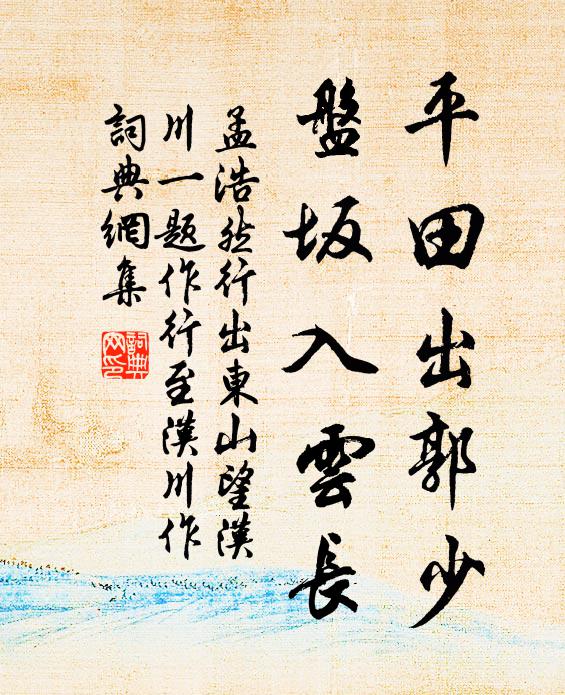 平田出郭少
盤坂入雲長
孟浩然行出東山望漢
川一題作行至漢川作
詞典網集
詞典
网印